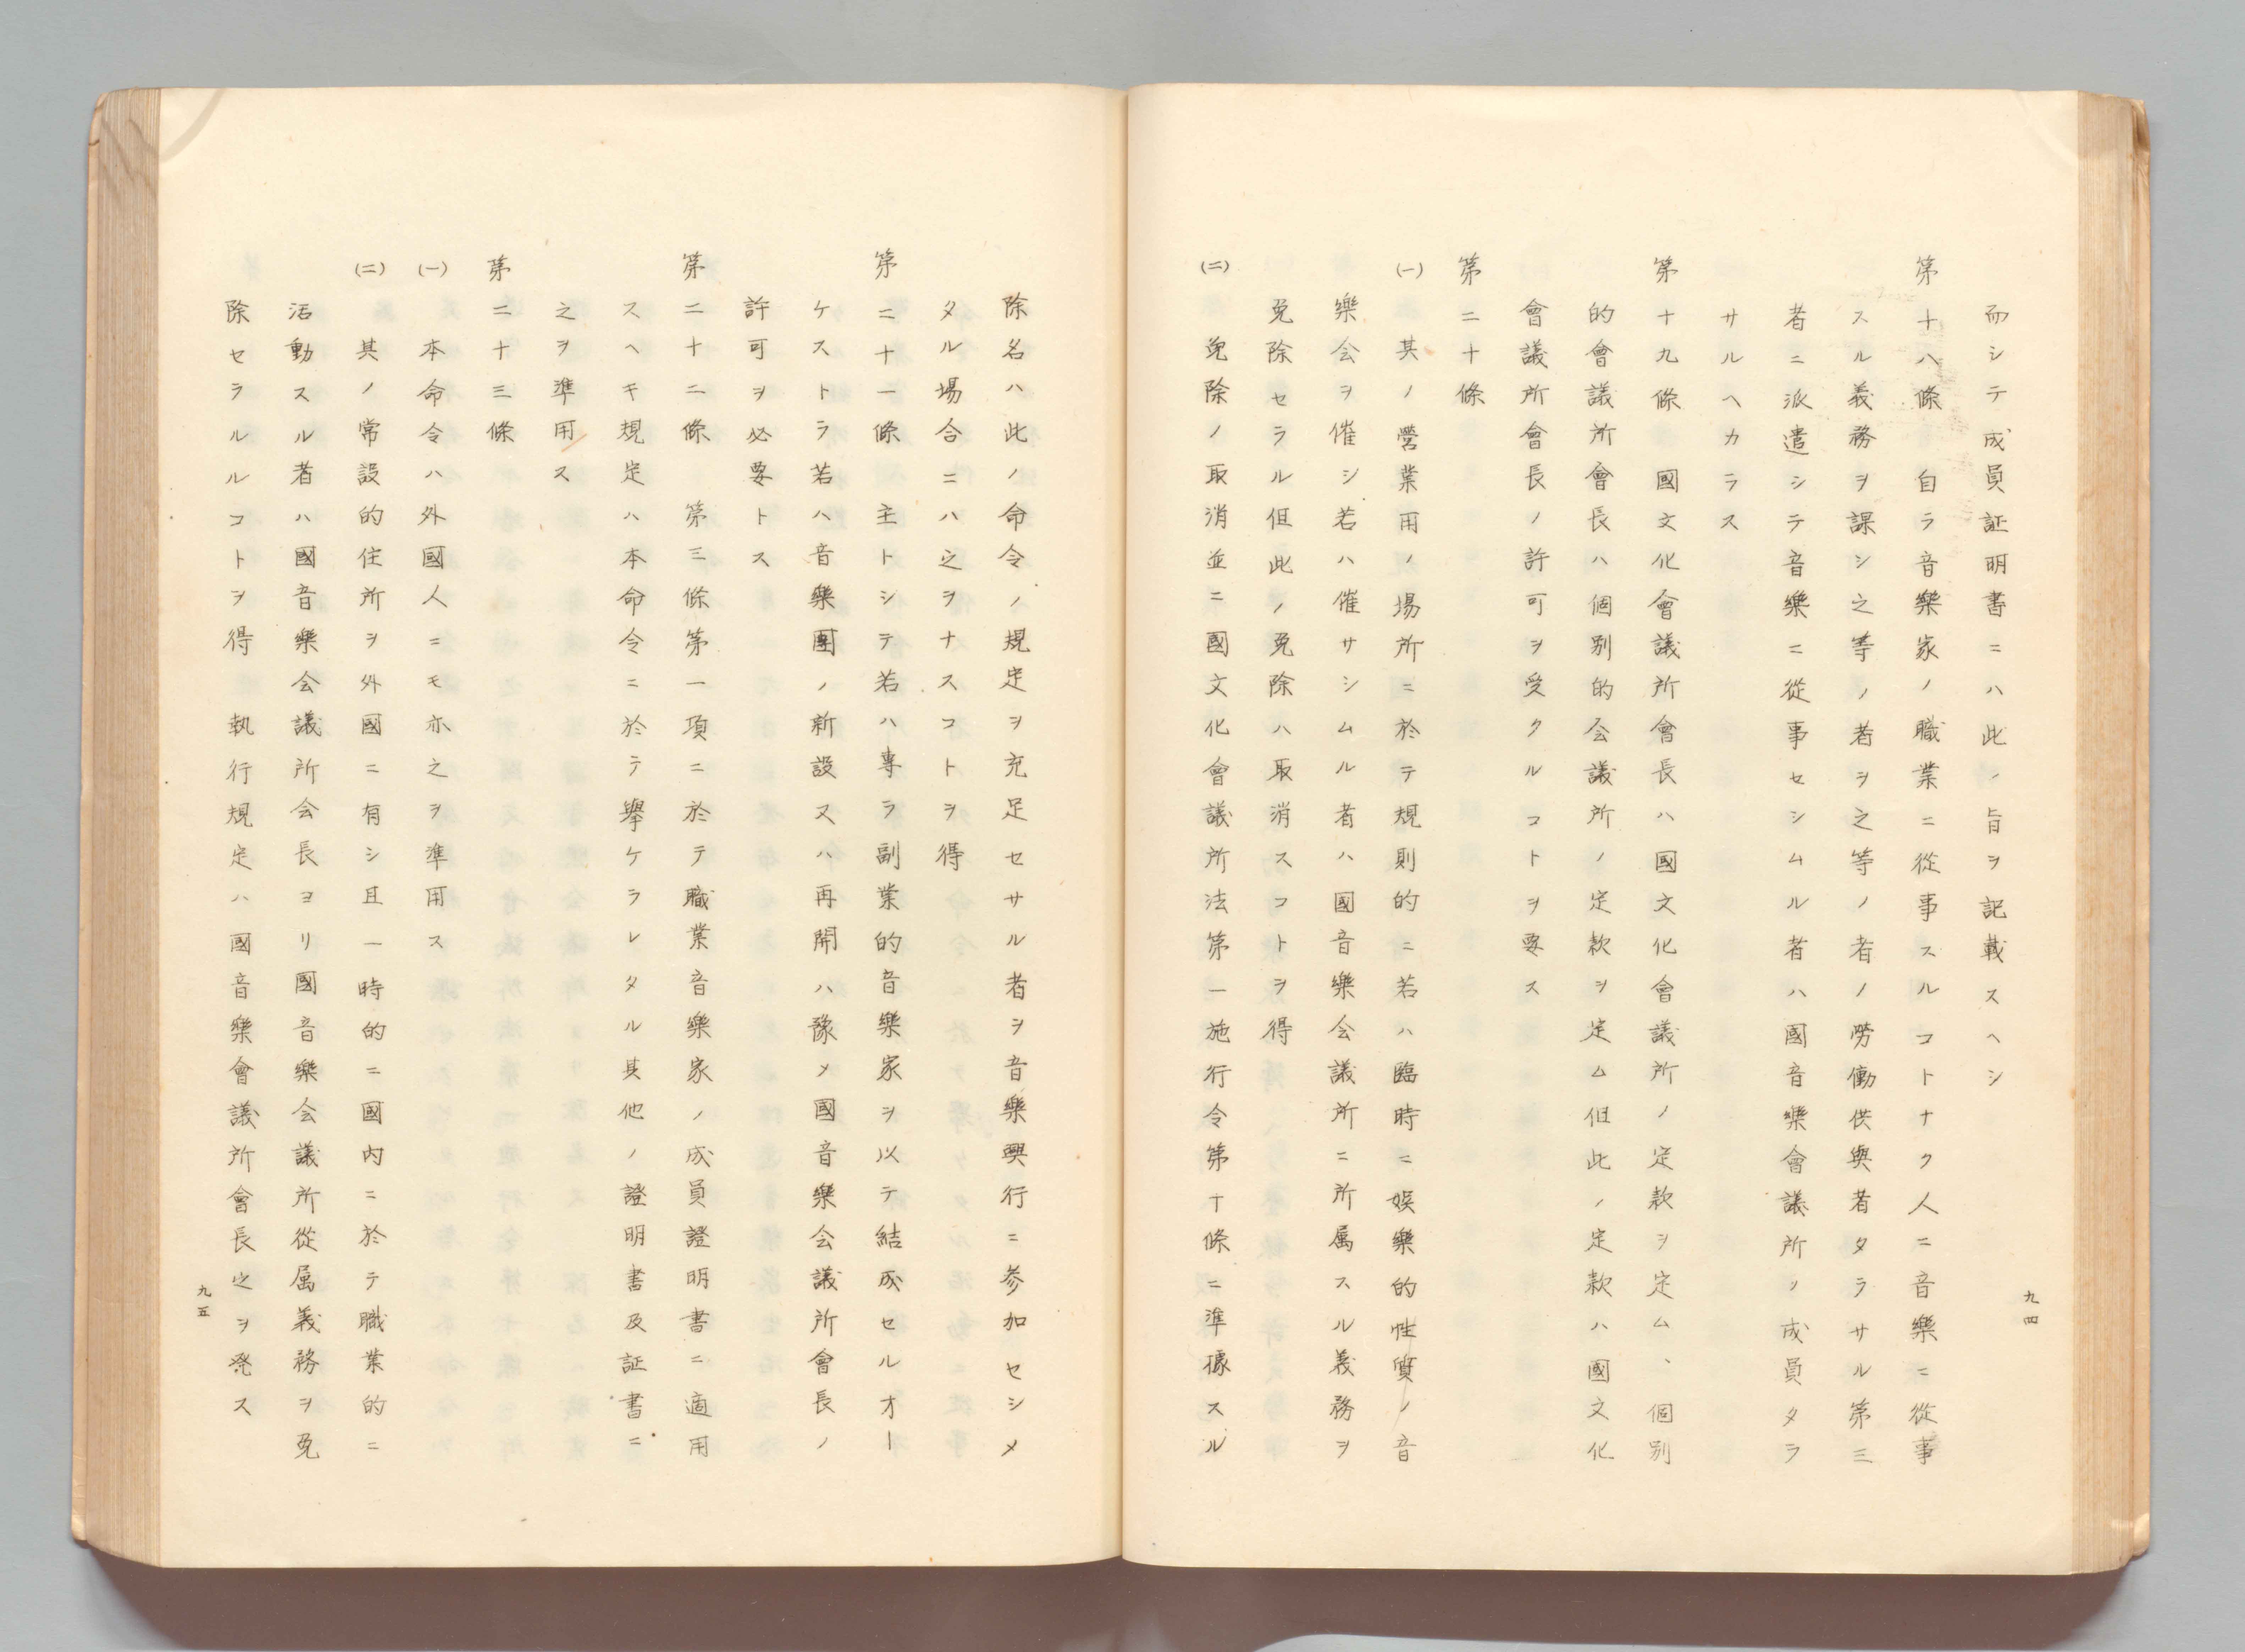 而シテ成員証明書ニハ此ノ旨ヲ記載スヘシ
第十八條　自ラ音樂家ノ職業ニ從事スルコトナク人ニ音樂ニ從事
スル義務ヲ課シ之等ノ者ヲ之等ノ者ノ勞働供與者タラサル第三
者ニ派遣シテ音樂ニ從事セシムル者ハ國音樂會議所ノ成員タラ
サルヘカラス
第十九條　國文化會議所會長ハ國文化會議所ノ定款ヲ定ム、個別
的會議所會長ハ個別的会議所ノ定款ヲ定ム但此ノ定款ハ國文化
會議所會長ノ許可ヲ受クルコトヲ要ス
第二十條
(一)　其ノ營業用ノ場所ニ於テ規則的ニ若ハ臨時ニ娯樂的性質ノ音
樂会ヲ催シ若ハ催サシムル者ハ國音樂会議所ニ所属スル義務ヲ
免除セラル但此ノ免除ハ取消スコトヲ得
(二)　免除ノ取消並ニ國文化會議所法第一施行令第十條ニ準據スル
九四
除名ハ此ノ命令ノ規定ヲ充足セサル者ヲ音樂興行ニ参加セシメ
タル場合ニハ之ヲナスコトヲ得
第二十一條　主トシテ若ハ專ラ副業的音樂家ヲ以テ結成セルオー
ケストラ若ハ音樂團ノ新設又ハ再開ハ豫メ國音樂会議所會長ノ
許可ヲ必要トス
第二十二條　第三條第一項ニ於テ職業音樂家ノ成員證明書ニ適用
スヘキ規定ハ本命令ニ於テ擧ケラレタル其他ノ證明書及証書ニ
之ヲ準用ス
第二十三條
(一)　本命令ハ外國人ニモ亦之ヲ準用ス
(二)　其ノ常設的住所ヲ外國ニ有シ且一時的ニ國内ニ於テ職業的ニ
活動スル者ハ國音樂会議所会長ヨリ國音樂会議所從属義務ヲ免
除セラルルコトヲ得　執行規定ハ國音樂會議所會長之ヲ発ス
九五